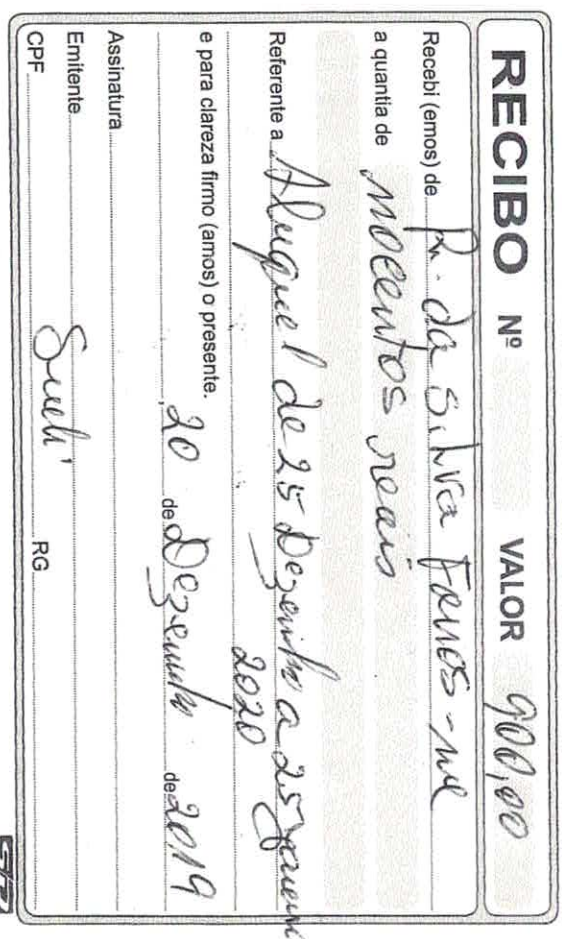 RECIBO Nº VALOR 900,00
Recebi (emos) de R. da Silva -me
a quantia de nocentos reais
Referente a Aluguel de 25 Dezembro a 25 Janeiro
2020
e para clareza firmo (amos) o presente.
, 20 de Dezembro de 2019
Assinatura
Emitente Sueli
CPF RG